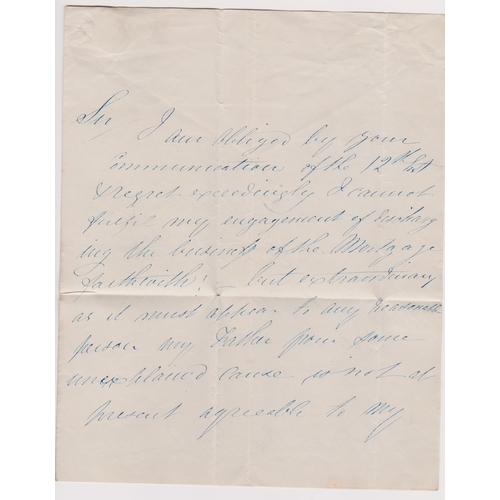 Sir I am obliged by your
Communication of the 12th Inst
& regret exceedingly I cannot
fulfil my engagement of discharg
ing the business of the Mortgage
forthwith! — but extraordinary
as it must appear to any reasonable
person my Father from some
unexplained cause is not at
present agreable to my